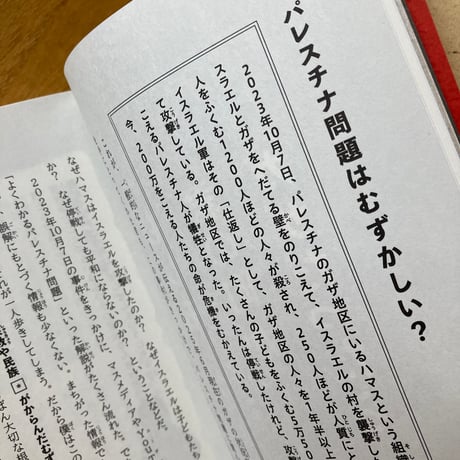 パレスチナ問題はむずかしい?
2023年10月7日、パレスチナのガザ地区にいるハマスという組織
スラエルとガザをへだてる壁をのりこえて、イスラエルの村を襲撃し
人をふくむ1200人ほどの人々が殺され、250人ほどが人質にと
イスラエル軍はその「仕返し」として、ガザ地区の人々を1年半以上
て攻撃している。ガザ地区では、たくさんの子どもをふくむ5万
こえるパレスチナ人が犠牲となった。いったんは停戦したけれど、
今、200万をこえる人たちの命が危機をむかえている。
なぜハマスはイスラエルを攻撃したのか? なぜイスラエルは子どもた
か? なぜ停戦しても平和にならないのか? ということなどだ。
2023年10月7日の事件をきっかけに、マスメディアや
「よくわかるパレスチナ問題」といった解説がたくさん
誤解にもとづく情報も少なくない。まちがった情報で
れが一人歩きしてしまう。だから僕はこの
や民族 がからんだむず